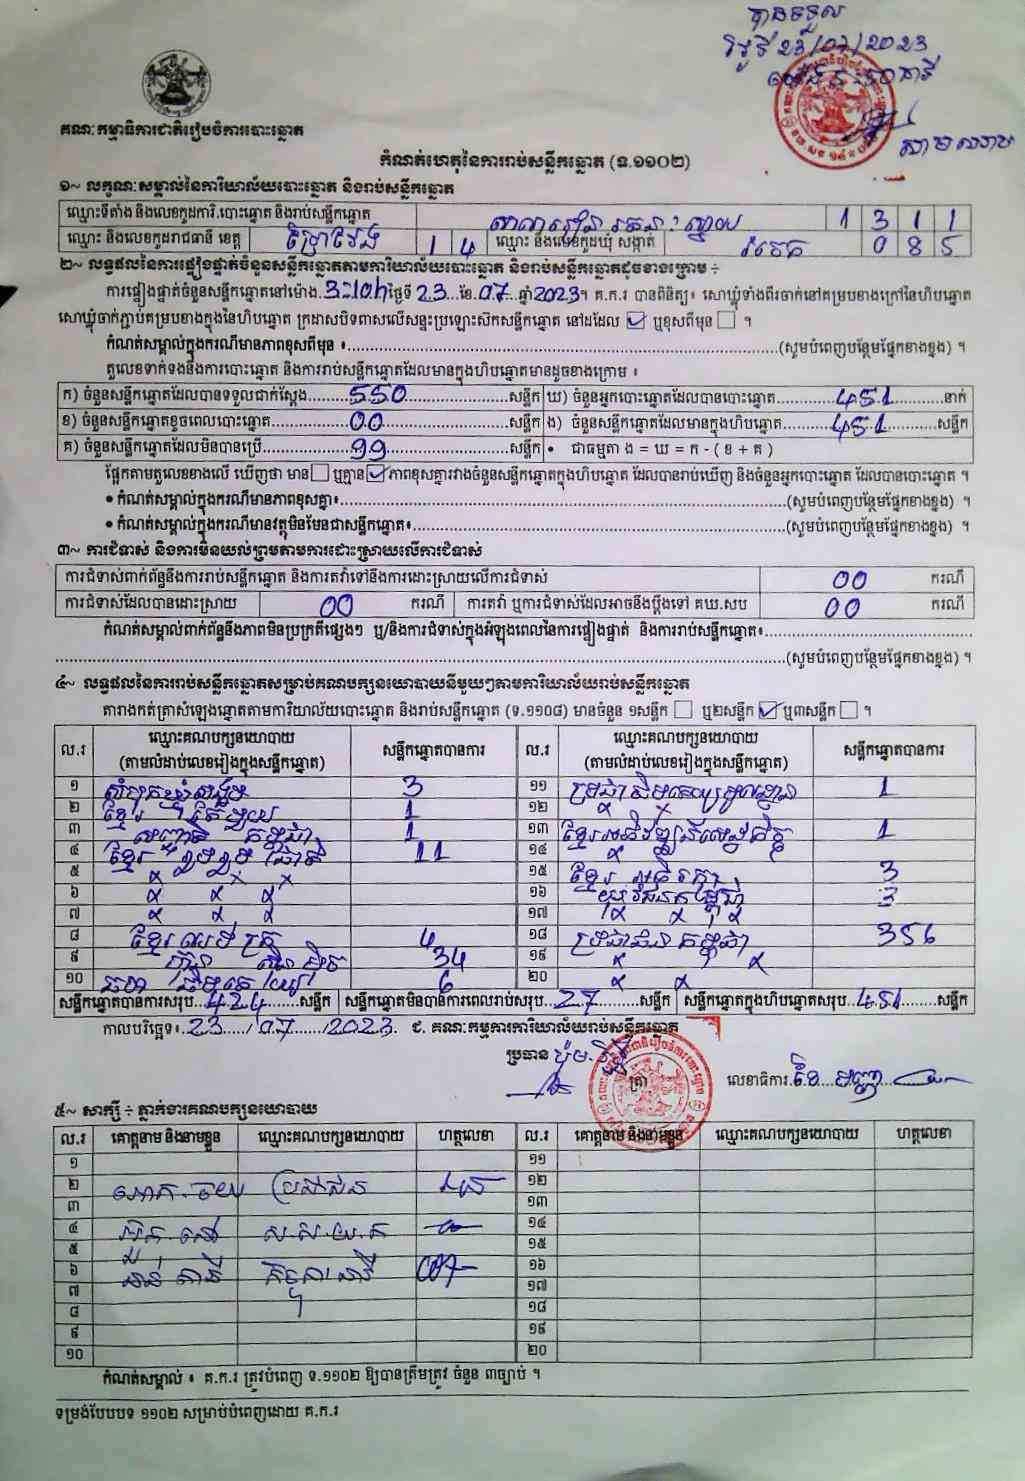 បានទទួល
ថ្ងៃទី 23/07/2023
គណៈកម្មាធិការជាតិរៀបចំការបោះឆ្នោត
កំណត់ហេតុនៃការរាប់សន្លឹកឆ្នោត (ទ.១១០២)
១~ លក្ខណៈសម្គាល់នៃការិយាល័យបោះឆ្នោត និងរាប់សន្លឹកឆ្នោត
ឈ្មោះទីតាំង និងលេខកូដការិ.បោះឆ្នោត និងរាប់សន្លឹកឆ្នោត 1 3 1 1
ឈ្មោះ និងលេខកូដរាជធានី ខេត្ត ព្រៃវែង 1 4 ឈ្មោះ និងលេខកូដឃុំ សង្កាត់ 0 8 5
២~ លទ្ធផលនៃការផ្ទៀងផ្ទាត់ចំនួនសន្លឹកឆ្នោតតាមការិយាល័យបោះឆ្នោត និងរាប់សន្លឹកឆ្នោតដូចខាងក្រោម ÷
ការផ្ទៀងផ្ទាត់ចំនួនសន្លឹកឆ្នោតនៅម៉ោង.3:10h ថ្ងៃទី 23...ខែ.07...ឆ្នាំ2023។ គ.ក.រ បានពិនិត្យ៖ សោឃ្លុំទាំងពីរចាក់នៅគម្របខាងក្រៅនៃហិបឆ្នោត
សោឃ្លុំចាក់ភ្ជាប់គម្របខាងក្នុងនៃហិបឆ្នោត ក្រដាសបិទពាសលើសន្ទះប្រឡោះសិកសន្លឹកឆ្នោត នៅដដែល ☑ ឬខុសពីមុន ☐ ។
កំណត់សម្គាល់ក្នុងករណីមានភាពខុសពីមុន ៖......(សូមបំពេញបន្ថែមផ្នែកខាងខ្នង) ។
តួលេខទាក់ទងនឹងការបោះឆ្នោត និងការរាប់សន្លឹកឆ្នោតដែលមានក្នុងហិបឆ្នោតមានដូចខាងក្រោម ៖
ក) ចំនួនសន្លឹកឆ្នោតដែលបានទទួលជាក់ស្តែង......550......សន្លឹក ឃ) ចំនួនអ្នកបោះឆ្នោតដែលបានបោះឆ្នោត......451......នាក់
ខ) ចំនួនសន្លឹកឆ្នោតខូចពេលបោះឆ្នោត......00......សន្លឹក ង) ចំនួនសន្លឹកឆ្នោតដែលមានក្នុងហិបឆ្នោត......451......សន្លឹក
គ) ចំនួនសន្លឹកឆ្នោតដែលមិនបានប្រើ......99......សន្លឹក • ជាធម្មតា ង = ឃ = ក - ( ខ + គ )
ផ្អែកតាមតួលេខខាងលើ ឃើញថា មាន ☐ ឬគ្មាន ☑ ភាពខុសគ្នារវាងចំនួនសន្លឹកឆ្នោតក្នុងហិបឆ្នោត ដែលបានរាប់ឃើញ និងចំនួនអ្នកបោះឆ្នោត ដែលបានបោះឆ្នោត ។
• កំណត់សម្គាល់ក្នុងករណីមានភាពខុសគ្នា៖......(សូមបំពេញបន្ថែមផ្នែកខាងខ្នង) ។
• កំណត់សម្គាល់ក្នុងករណីមានវត្ថុមិនមែនជាសន្លឹកឆ្នោត៖......(សូមបំពេញបន្ថែមផ្នែកខាងខ្នង) ។
៣~ ការជំទាស់ និងការមិនយល់ព្រមតាមការដោះស្រាយលើការជំទាស់
ការជំទាស់ពាក់ព័ន្ធនឹងការរាប់សន្លឹកឆ្នោត និងការតវ៉ាទៅនឹងការដោះស្រាយលើការជំទាស់ 00 ករណី
ការជំទាស់ដែលបានដោះស្រាយ 00 ករណី ការតវ៉ា ឬការជំទាស់ដែលអាចនឹងប្តឹងទៅ គឃ.សប 00 ករណី
កំណត់សម្គាល់ពាក់ព័ន្ធនឹងភាពមិនប្រក្រតីផ្សេងៗ ឬ/និងការជំទាស់ក្នុងអំឡុងពេលនៃការផ្ទៀងផ្ទាត់ និងការរាប់សន្លឹកឆ្នោត៖......
......(សូមបំពេញបន្ថែមផ្នែកខាងខ្នង) ។
៤~ លទ្ធផលនៃការរាប់សន្លឹកឆ្នោតសម្រាប់គណបក្សនយោបាយនីមួយៗតាមការិយាល័យរាប់សន្លឹកឆ្នោត
តារាងកត់ត្រាសំឡេងឆ្នោតតាមការិយាល័យបោះឆ្នោត និងរាប់សន្លឹកឆ្នោត (ទ.១១០៨) មានចំនួន ១សន្លឹក ☐ ឬ២សន្លឹក ☑ ឬ៣សន្លឹក ☐ ។
ល.រ ឈ្មោះគណបក្សនយោបាយ (តាមលំដាប់លេខរៀងក្នុងសន្លឹកឆ្នោត) សន្លឹកឆ្នោតបានការ ល.រ ឈ្មោះគណបក្សនយោបាយ (តាមលំដាប់លេខរៀងក្នុងសន្លឹកឆ្នោត) សន្លឹកឆ្នោតបានការ
១ សំបុកឃ្មុំសង្គម 3 ១១ 1
២ ខ្មែរ តែមួយ 1 ១២ x
៣ សញ្ជាតិ កម្ពុជា 1 ១៣ ខ្មែរអភិវឌ្ឍន៍សេដ្ឋកិច្ច 1
៤ ខ្មែរ រួបរួម ជាតិ 11 ១៤ x
៥ x x x ១៥ ខ្មែរ អភិរក្ស 3
៦ x x x ១៦ យុវជនកម្ពុជា 3
៧ x x x ១៧ x x x
៨ ខ្មែរ ឈប់ ក្រ 4 ១៨ ប្រជាជន កម្ពុជា 356
៩ 34 ១៩ x x
១០ 6 ២០ x x
សន្លឹកឆ្នោតបានការសរុប..424....សន្លឹក សន្លឹកឆ្នោតមិនបានការពេលរាប់សរុប..27......សន្លឹក សន្លឹកឆ្នោតក្នុងហិបឆ្នោតសរុប..451......សន្លឹក
កាលបរិច្ឆេទ៖.23...../07....../2023. ជ. គណៈកម្មការការិយាល័យរាប់សន្លឹកឆ្នោត
ប្រធាន
ត្រា
លេខាធិការ
៥~ សាក្សី ÷ ភ្នាក់ងារគណបក្សនយោបាយ
ល.រ គោត្តនាម និងនាមខ្លួន ឈ្មោះគណបក្សនយោបាយ ហត្ថលេខា ល.រ គោត្តនាម និងនាមខ្លួន ឈ្មោះគណបក្សនយោបាយ ហត្ថលេខា
១ ១១
២ ប្រជាជន ១២
៣ ១៣
៤ ស.ស.យ.ក ១៤
៥ ១៥
៦ ១៦
៧ ១៧
៨ ១៨
៩ ១៩
១០ ២០
កំណត់សម្គាល់ ៖ គ.ក.រ ត្រូវបំពេញ ទ.១១០២ ឱ្យបានត្រឹមត្រូវ ចំនួន ៣ច្បាប់ ។
ទម្រង់បែបបទ ១១០២ សម្រាប់បំពេញដោយ គ.ក.រ